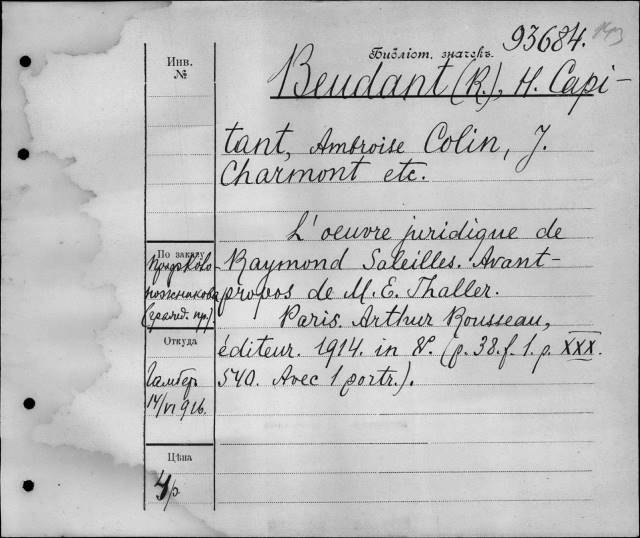 93684. 143
Библіот. значекъ.
Инв.
№
Beudant (R.), H. Capi-
tant, Ambroise Colin, J.
Charmont etc.
L'oeuvre juridique de
Raymond Saleilles. Avant-
propos de M. E. Thaller.
Paris. Arthur Rousseau,
éditeur. 1914. in 8°. (p. 38. f. 1. p. XXX.
540. Avec 1 portr.).
По заказу
(гражд. пр.).
Откуда
Гамбер
14/VI 916.
Цѣна
4 р.